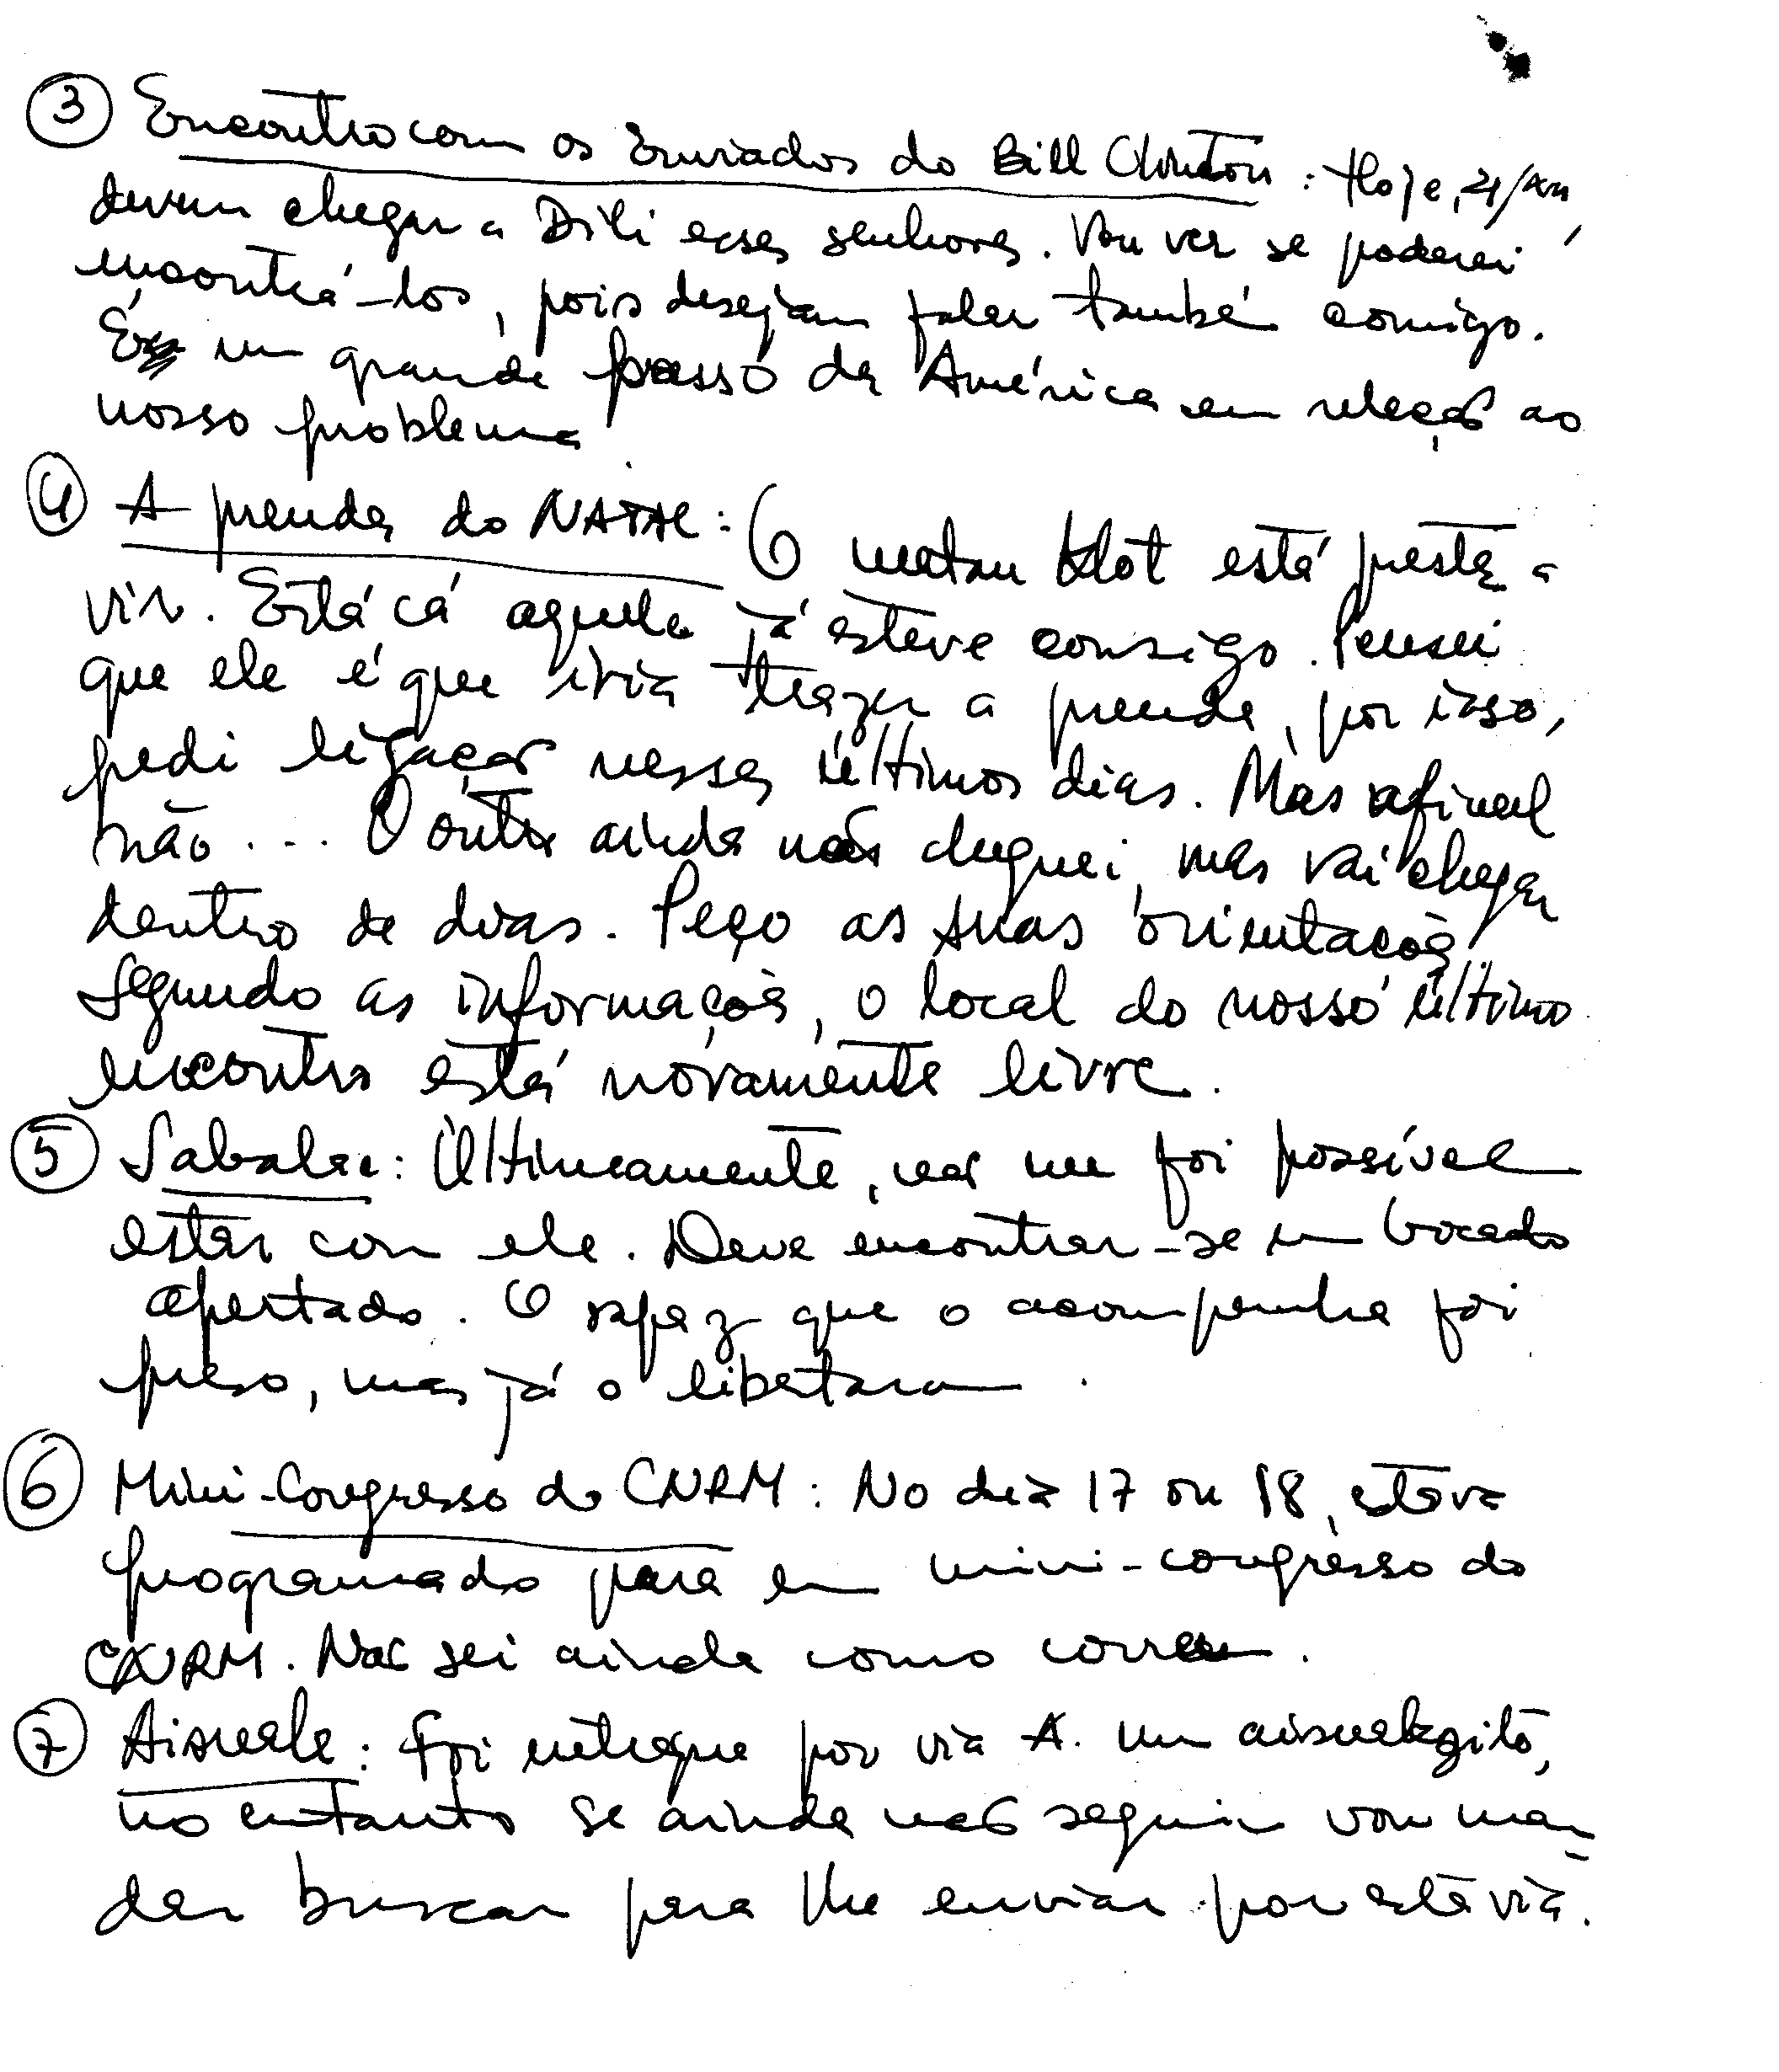 ③ Encontro com os Enviados do Bill Clinton: Hoje, 21/XII,
devem chegar a Dili esses senhores. Vou ver se poderei
encontrá-los, pois desejam falar também comigo.
É um grande passo da América em relação ao
nosso problema.
④ A prenda do NATAL: O matan klot está prestes a
vir. Está cá aquele já esteve consigo. Pensei
que ele é que iria trazer a prenda, por isso,
pedi ligação nesses últimos dias. Mas afinal
não... O outro ainda não chegou, mas vai chegar
dentro de dias. Peço as suas orientações
Segundo as informações, o local do nosso último
encontro está novamente livre.
⑤ Sabalae: Ultimamente, não me foi possível
estar com ele. Deve encontrar-se um bocado
apertado. O rapaz que o acompanha foi
preso, mas já o libertaram.
⑥ Mini-Congresso do CNRM: No dia 17 ou 18, estava
programado para um mini-congresso do
CNRM. Não sei ainda como correu.
⑦ : Foi entregue por via A. um
no entanto se ainda não seguiu vou man-
dar buscar para lhe enviar por esta via.